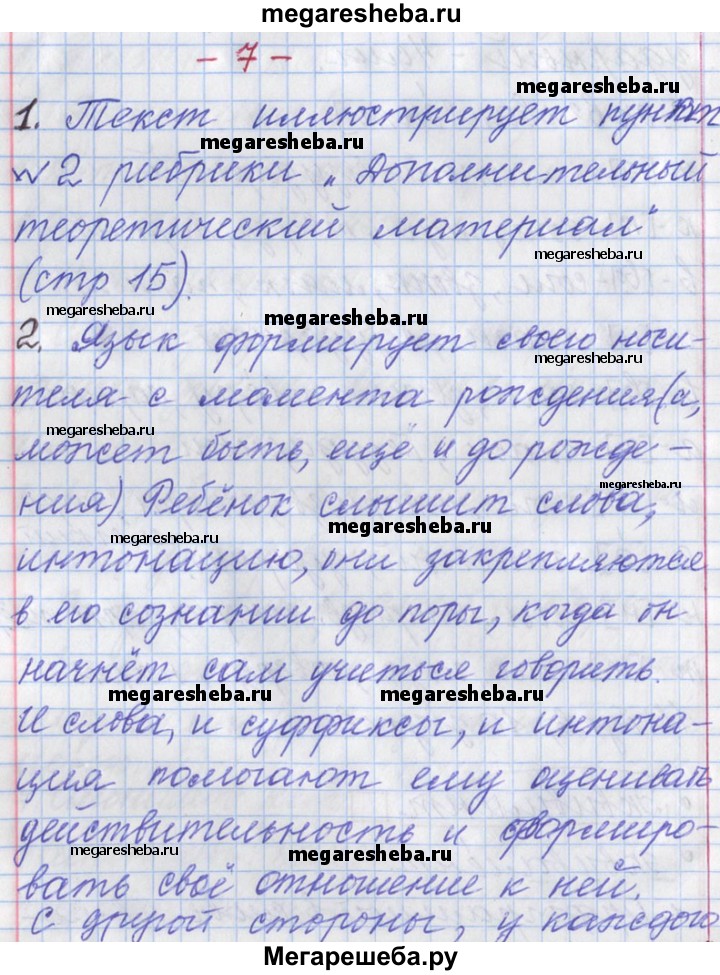 megaresheba.ru
- 7 -
megaresheba.ru
1. Текст иллюстрирует пункт
megaresheba.ru
№ 2 рубрики „Дополнительный
теоретический материал"
megaresheba.ru
(стр 15).
megaresheba.ru
megaresheba.ru
2. Язык формирует своего носи-
megaresheba.ru
теля с момента рождения (а,
megaresheba.ru
может быть, ещё и до рожде-
megaresheba.ru
ния). Ребёнок слышит слова,
megaresheba.ru
megaresheba.ru
интонацию, они закрепляются
в его сознании до поры, когда он
начнёт сам учиться говорить.
megaresheba.ru megaresheba.ru
И слова, и суффиксы, и интона-
ция помогают ему оценивать
действительность и формиро-
megaresheba.ru
megaresheba.ru
вать своё отношение к ней.
С другой стороны, у каждого
Мегарешеба.ру